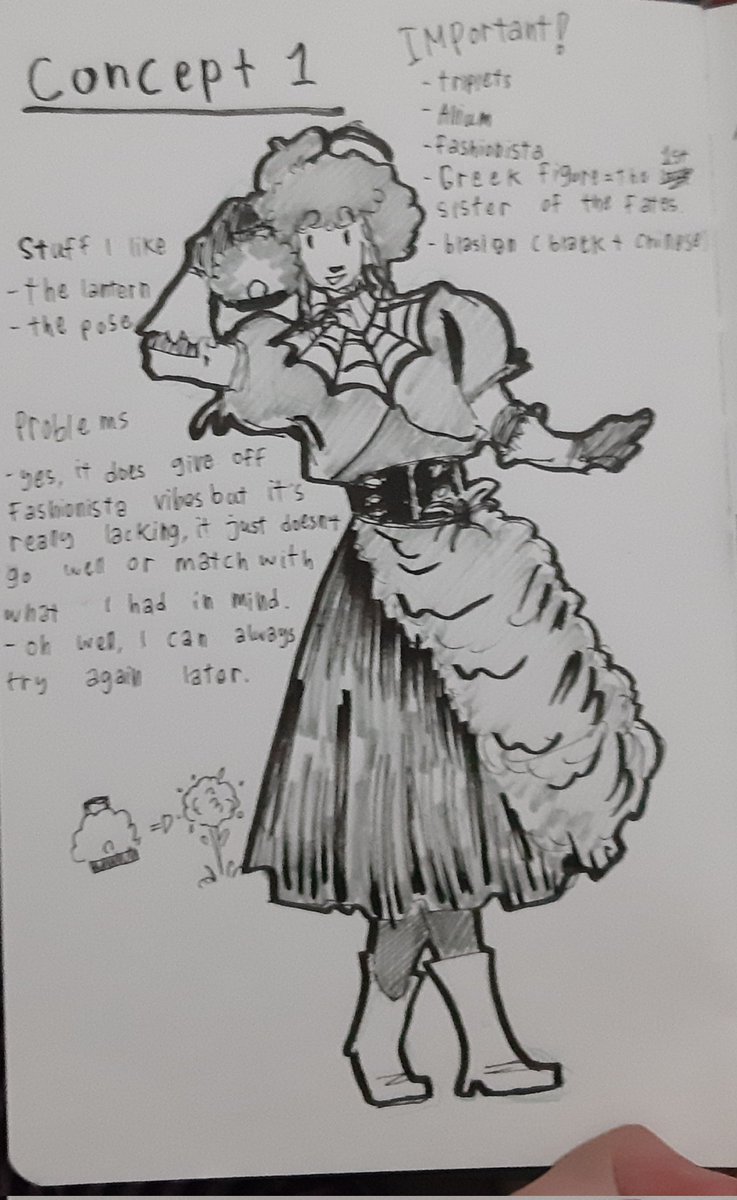 Concept 1
IMPortant!
- triplets
- Allium
- fashionista
- Greek figure = the 1st
sister of the Fates.
- blasian (black + Chinese)
Stuff I like
- the lantern
- the pose
Problems
- yes, it does give off
Fashionista vibes but it's
really lacking, it just doesn't
go well or match with
what I had in mind.
- oh well, I can always
try again later.